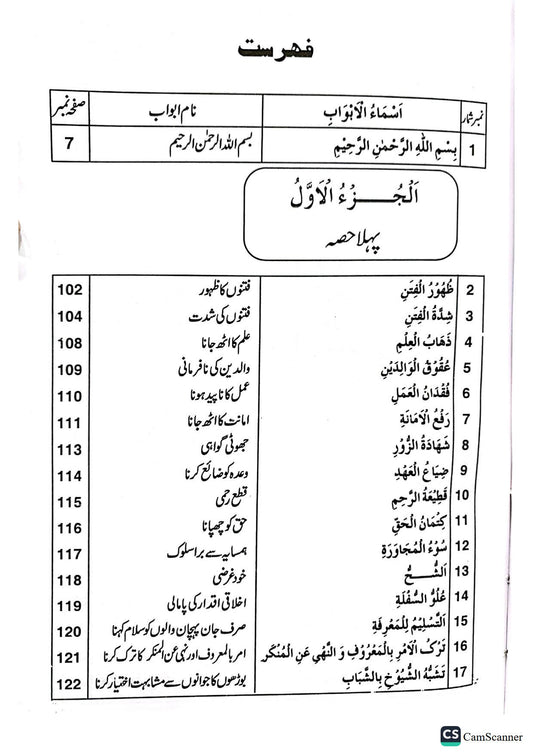 فهرست
نمبر شمار اَسْمَاءُ الْاَبْوَابِ نام ابواب صفحہ نمبر
1 بِسْمِ اللّٰهِ الرَّحْمٰنِ الرَّحِيْمِ بسم اللہ الرحمٰن الرحیم 7
اَلْجُــزْءُ الْاَوَّلُ
پہلا حصہ
2 ظُهُوْرُ الْفِتَنِ فتنوں کا ظہور 102
3 شِدَّةُ الْفِتَنِ فتنوں کی شدت 104
4 ذَهَابُ الْعِلْمِ علم کا اٹھ جانا 108
5 عُقُوْقُ الْوَالِدَيْنِ والدین کی نافرمانی 109
6 فُقْدَانُ الْعَمَلِ عمل کا ناپید ہونا 110
7 رَفْعُ الْاَمَانَةِ امانت کا اٹھ جانا 111
8 شَهَادَةُ الزُّوْرِ جھوٹی گواہی 113
9 ضِيَاعُ الْعَهْدِ وعدہ کو ضائع کرنا 114
10 قَطِيْعَةُ الرَّحِمِ قطع رحمی 115
11 كِتْمَانُ الْحَقِّ حق کو چھپانا 116
12 سُوْءُ الْمُجَاوَرَةِ ہمسایہ سے برا سلوک 117
13 اَلشُّــحُّ خود غرضی 118
14 عُلُوُّ السَّفْلَةِ اخلاقی اقدار کی پامالی 119
15 اَلتَّسْلِيْمُ لِلْمَعْرِفَةِ صرف جان پہچان والوں کو سلام کہنا 120
16 تَرْكُ الْاَمْرِ بِالْمَعْرُوْفِ وَ النَّهْىِ عَنِ الْمُنْكَرِ امر بالمعروف اور نہی عن المنکر کا ترک کرنا 121
17 تَشَبُّهُ الشُّيُوْخِ بِالشَّبَابِ بوڑھوں کا جوانوں سے مشابہت اختیار کرنا 122
CS CamScanner